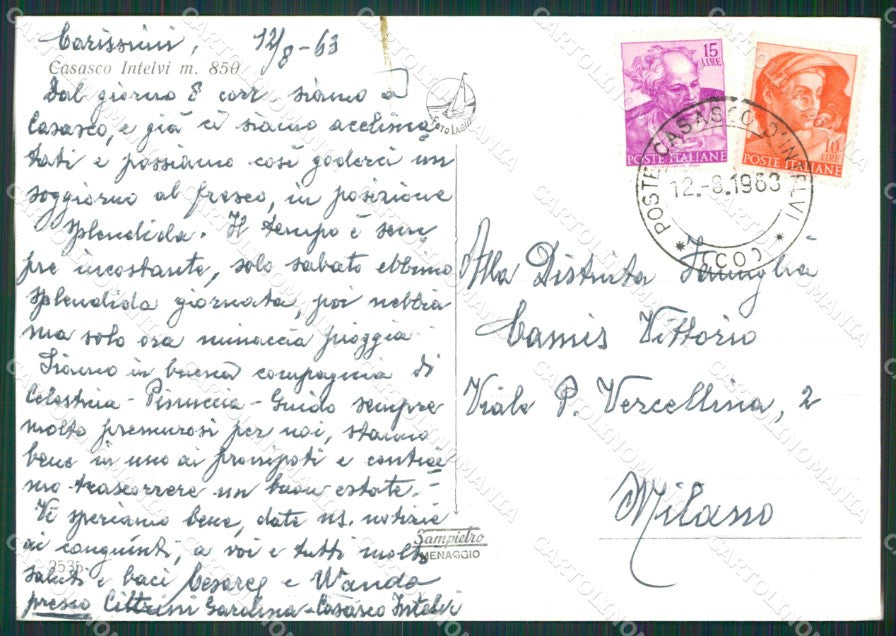 Carissimi, 12/8-63
Casasco Intelvi m. 850
Dal giorno 8 corr siamo a
Casasco, e già ci siamo acclima
tati e possiamo così goderci un
soggiorno al fresco, in posizione
splendida. Il tempo è sem
pre incostante, solo sabato ebbimo
splendida giornata, poi nebbia
ma solo ora minaccia pioggia
Siamo in buona compagnia di
Celestina - Pinuccia - Guido sempre
molto premurosi per noi, stanno
bene in uno ai pronipoti e contia
mo trascorrere un buon estate.-
Vi speriamo bene, date ns. notizie
ai congiunti, a voi e tutti molti
saluti e baci Cesare e Wanda
presso Cittrini Gardina - Casasco Intelvi
2535
FOTO LARIO
Sampietro
MENAGGIO
15
LIRE
POSTE ITALIANE
10
LIRE
POSTE ITALIANE
POSTE CASASCO D'INTELVI
12.-8.1963
(CO)
Alla Distinta Famiglia
Camis Vittorio
Viale P. Vercellina, 2
Milano
CARTOLINOMANIA